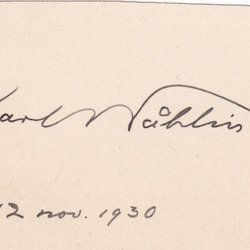 Karl Wåhlin
12 nov. 1930